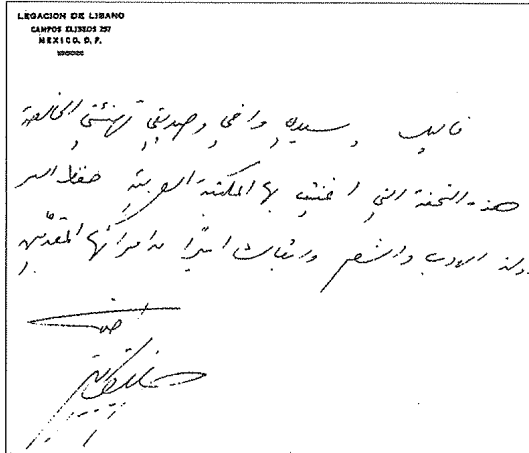 LEGACION DE LIBANO
CAMPOS ELISEOS 257
MEXICO, D. F.
فاليك سيدي واخي وصديقي تهنئتي الخالصة
هذه التحفة التي اغنيت بها المكتبة العربية حفظك الله
لدولة الادب والشعر وابقاك اميرًا من امرائها المقدّمين